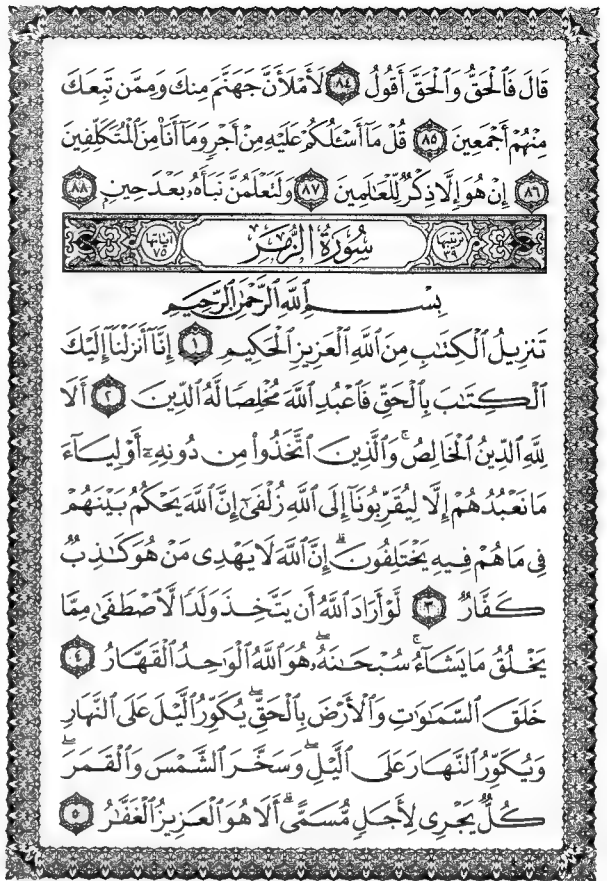 قَالَ فَٱلْحَقُّ وَٱلْحَقَّ أَقُولُ ٨٤ لَأَمْلَأَنَّ جَهَنَّمَ مِنكَ وَمِمَّن تَبِعَكَ
مِنْهُمْ أَجْمَعِينَ ٨٥ قُلْ مَآ أَسْـَٔلُكُمْ عَلَيْهِ مِنْ أَجْرٍ وَمَآ أَنَا۠ مِنَ ٱلْمُتَكَلِّفِينَ
٨٦ إِنْ هُوَ إِلَّا ذِكْرٌ لِّلْعَـٰلَمِينَ ٨٧ وَلَتَعْلَمُنَّ نَبَأَهُۥ بَعْدَ حِينٍۭ ٨٨
ترتيبها ٣٩ سُورَةُ الزُّمَرِ آياتها ٧٥
بِسْمِ ٱللَّهِ ٱلرَّحْمَـٰنِ ٱلرَّحِيمِ
تَنزِيلُ ٱلْكِتَـٰبِ مِنَ ٱللَّهِ ٱلْعَزِيزِ ٱلْحَكِيمِ ١ إِنَّآ أَنزَلْنَآ إِلَيْكَ
ٱلْكِتَـٰبَ بِٱلْحَقِّ فَٱعْبُدِ ٱللَّهَ مُخْلِصًا لَّهُ ٱلدِّينَ ٢ أَلَا
لِلَّهِ ٱلدِّينُ ٱلْخَالِصُ ۚ وَٱلَّذِينَ ٱتَّخَذُوا۟ مِن دُونِهِۦٓ أَوْلِيَآءَ
مَا نَعْبُدُهُمْ إِلَّا لِيُقَرِّبُونَآ إِلَى ٱللَّهِ زُلْفَىٰٓ إِنَّ ٱللَّهَ يَحْكُمُ بَيْنَهُمْ
فِى مَا هُمْ فِيهِ يَخْتَلِفُونَ ۗ إِنَّ ٱللَّهَ لَا يَهْدِى مَنْ هُوَ كَـٰذِبٌ
كَفَّارٌ ٣ لَّوْ أَرَادَ ٱللَّهُ أَن يَتَّخِذَ وَلَدًا لَّٱصْطَفَىٰ مِمَّا
يَخْلُقُ مَا يَشَآءُ ۚ سُبْحَـٰنَهُۥ ۖ هُوَ ٱللَّهُ ٱلْوَٰحِدُ ٱلْقَهَّارُ ٤
خَلَقَ ٱلسَّمَـٰوَٰتِ وَٱلْأَرْضَ بِٱلْحَقِّ ۖ يُكَوِّرُ ٱلَّيْلَ عَلَى ٱلنَّهَارِ
وَيُكَوِّرُ ٱلنَّهَارَ عَلَى ٱلَّيْلِ ۖ وَسَخَّرَ ٱلشَّمْسَ وَٱلْقَمَرَ ۖ
كُلٌّ يَجْرِى لِأَجَلٍ مُّسَمًّى ۗ أَلَا هُوَ ٱلْعَزِيزُ ٱلْغَفَّـٰرُ ٥